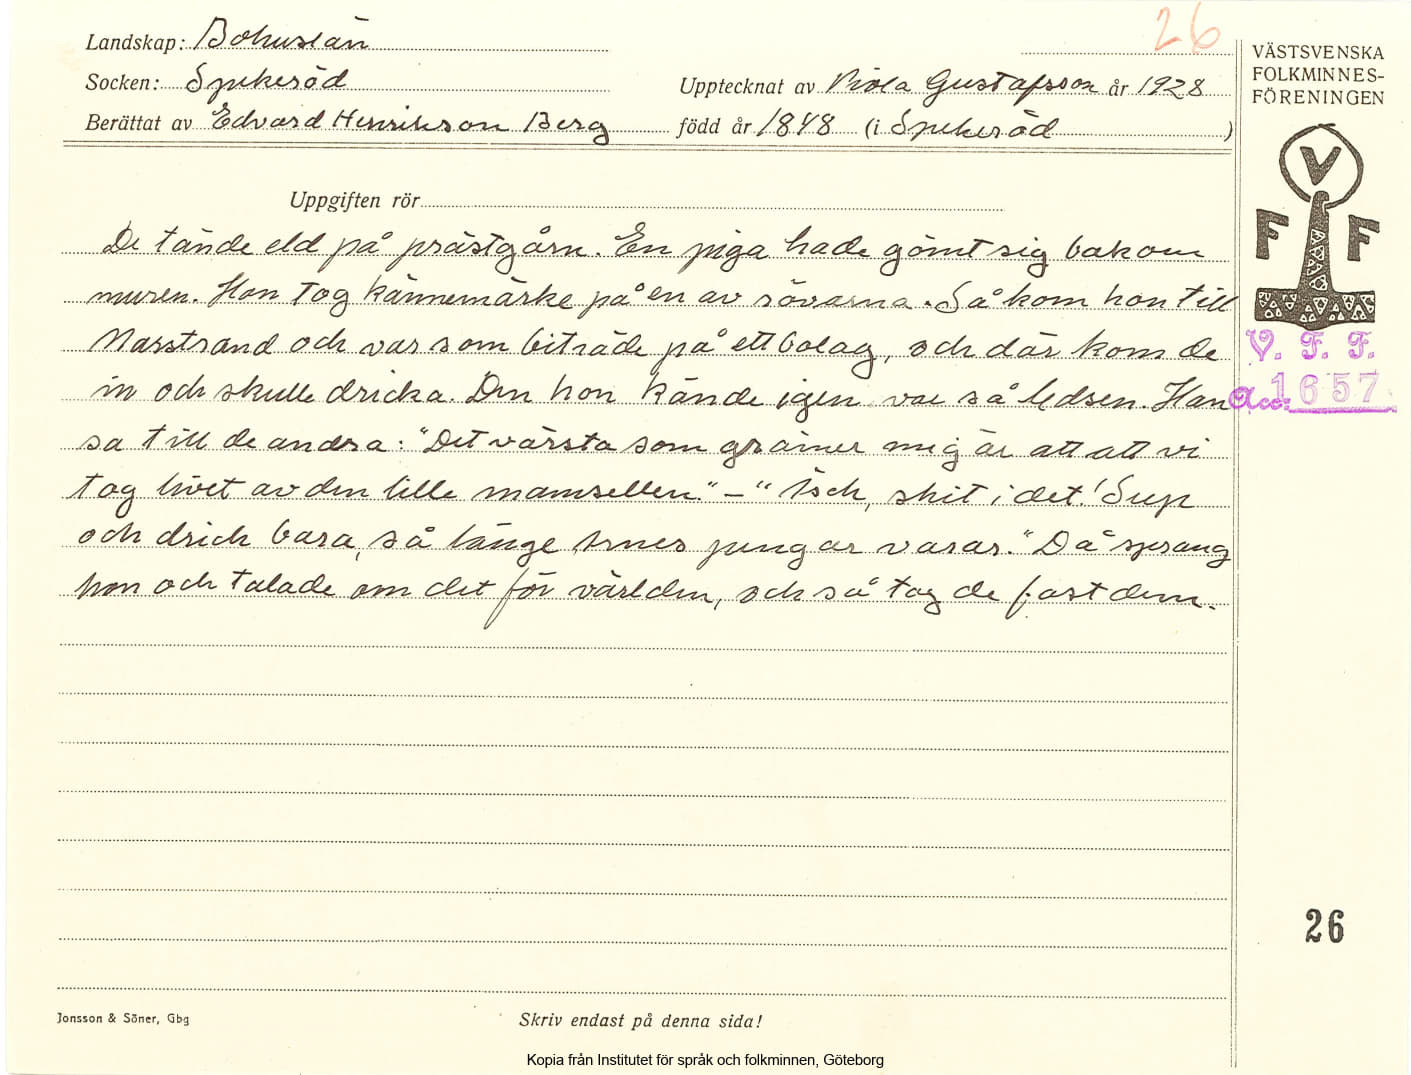 26
Landskap: Bohuslän
Socken: Spekeröd
Upptecknat av Viola Gustafsson år 1928
Berättat av Edvard Henrikson Berg född år 1848 (i Spekeröd)
VÄSTSVENSKA
FOLKMINNES-
FÖRENINGEN
V
F F
Uppgiften rör
De tände eld på prästgårn. En piga hade gömt sig bakom
muren. Hon tog kännemärke på en av rövarna. Så kom hon till
Marstrand och var som biträde på ett bolag, och där kom de
in och skulle dricka. Den hon kände igen var så ledsen. Han
sa till de andra: "Det värsta som grämer mig är att att vi
tog livet av den lille mamsellen." – "Isch, skit i det! Sup
och drick bara, så länge pungar varar." Då sprang
hon och talade om det för världen, och så tog de fast dem.
V. F. F.
Acc. 1657
26
Jonsson & Söner, Gbg
Skriv endast på denna sida!
Kopia från Institutet för språk och folkminnen, Göteborg